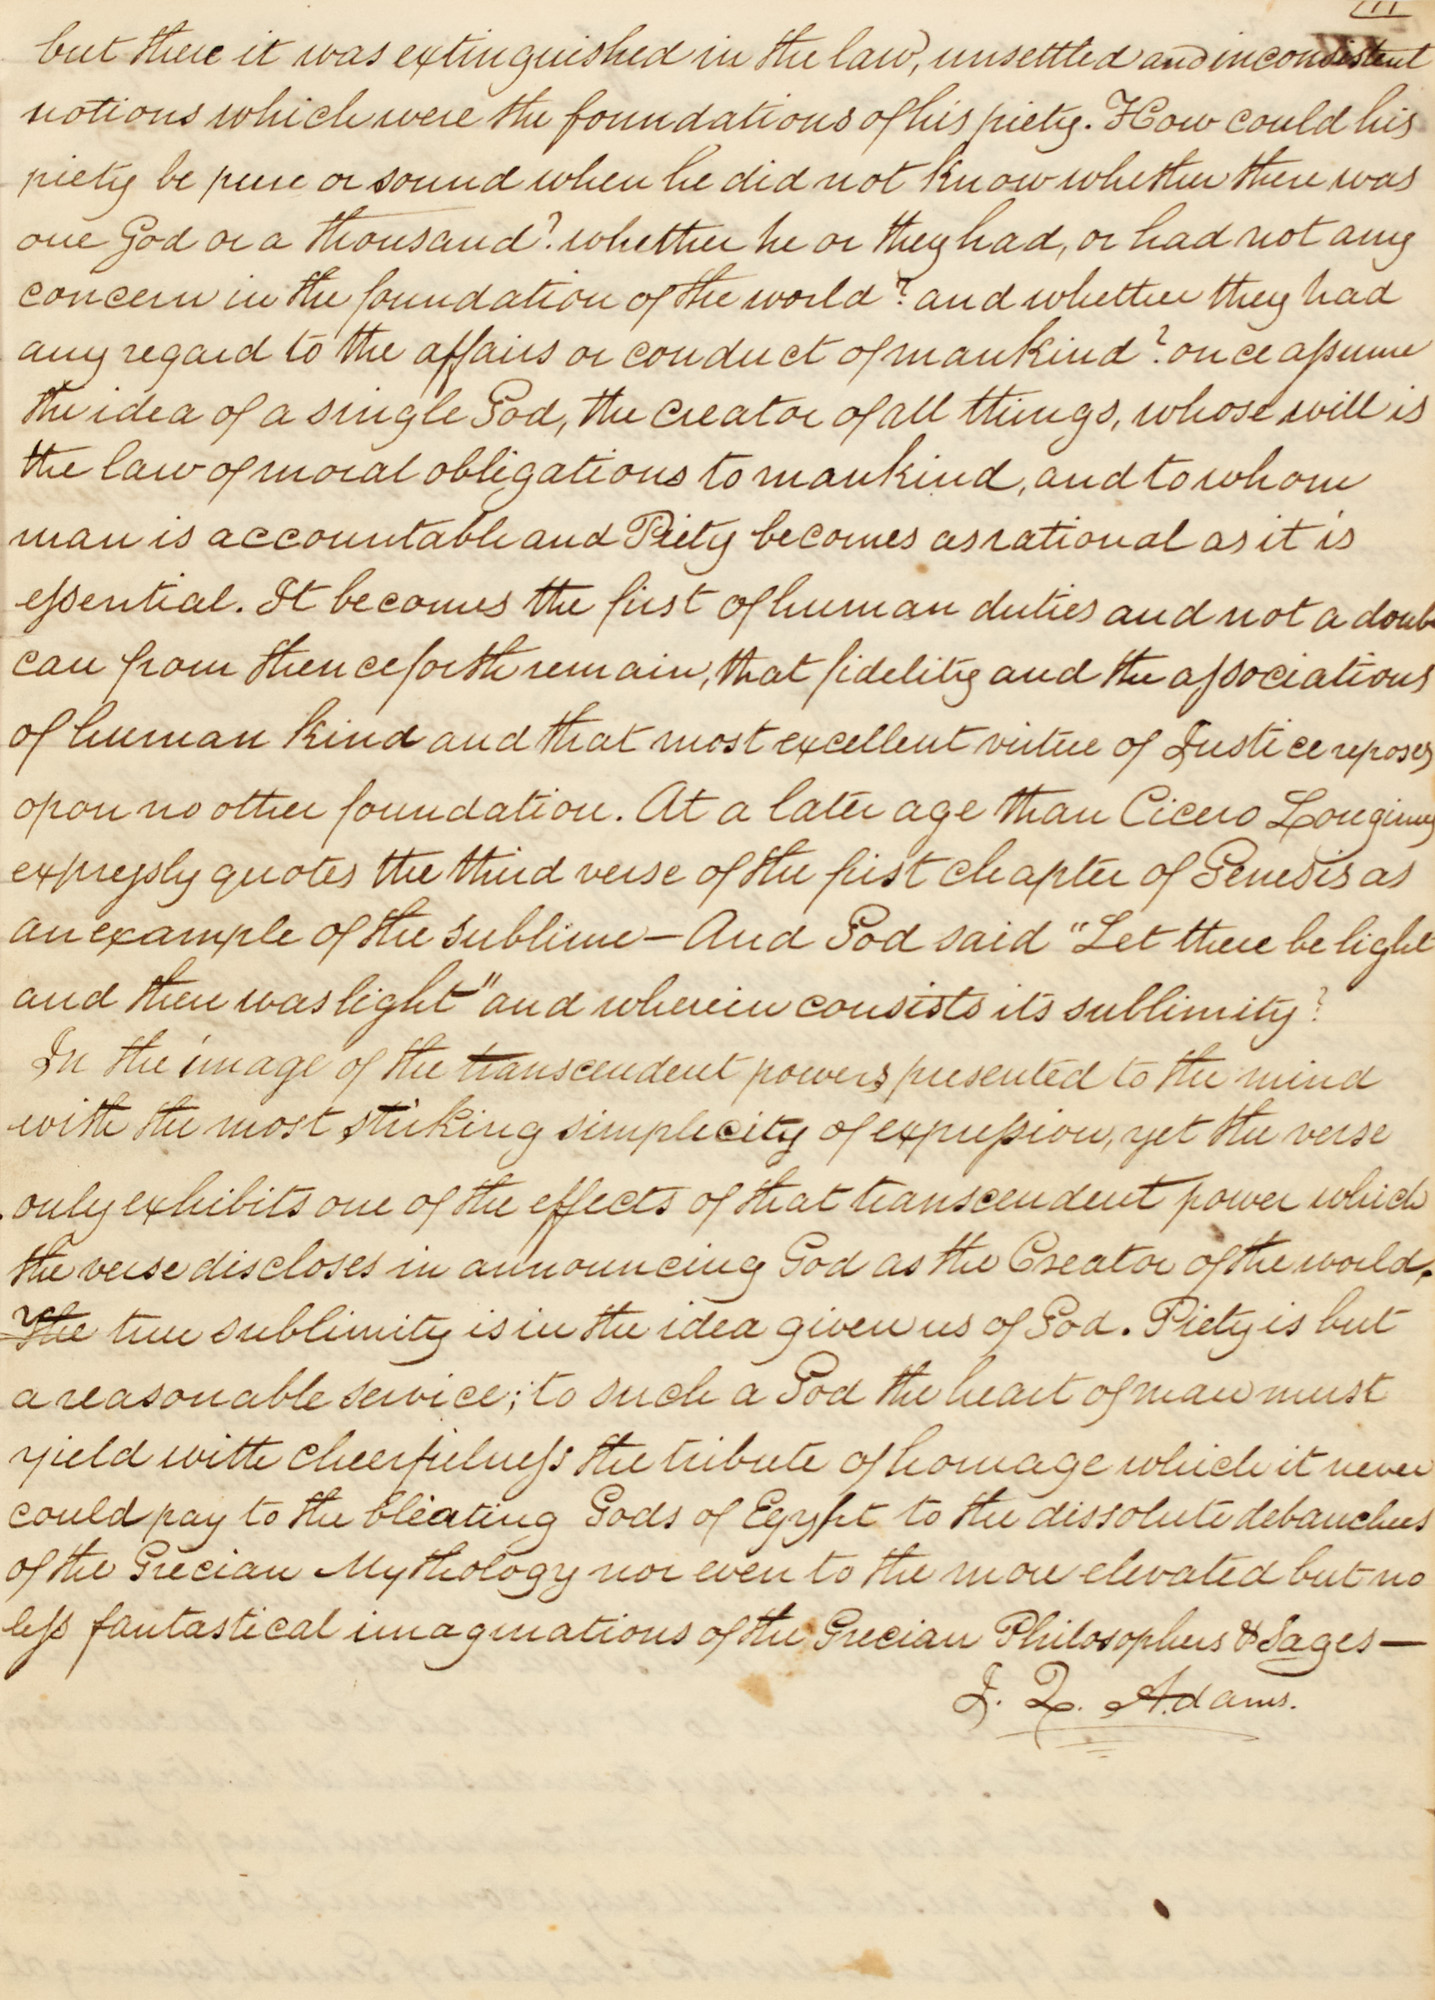 111
but there it was extinguished in the law, unsettled and inconsistent
notions which were the foundations of his piety. How could his
piety be pure or sound when he did not know whether there was
one God or a thousand? whether he or they had, or had not any
concern in the foundation of the world? and whether they had
any regard to the affairs or conduct of mankind? once assume
the idea of a single God, the creator of all things, whose will is
the law of moral obligations to mankind, and to whom
man is accountable and Piety becomes as rational as it is
essential. It becomes the first of human duties and not a doub
can from thenceforth remain, that fidelity and the associations
of human kind and that most excellent virtue of Justice reposes
upon no other foundation. At a later age than Cicero Longinus
expressly quotes the third verse of the first chapter of Genesis as
an example of the sublime — And God said "Let there be light
and there was light" and wherein consists its sublimity?
In the image of the transcendent powers presented to the mind
with the most striking simplicity of expression, yet the verse
only exhibits one of the effects of that transcendent power which
the verse discloses in announcing God as the Creator of the world.
The true sublimity is in the idea given us of God. Piety is but
a reasonable service; to such a God the heart of man must
yield with cheerfulness the tribute of homage which it never
could pay to the bleating Gods of Egypt to the dissolute debauchees
of the Grecian Mythology nor even to the more elevated but no
less fantastical imaginations of the Grecian Philosophers & Sages —
J. Q. Adams.